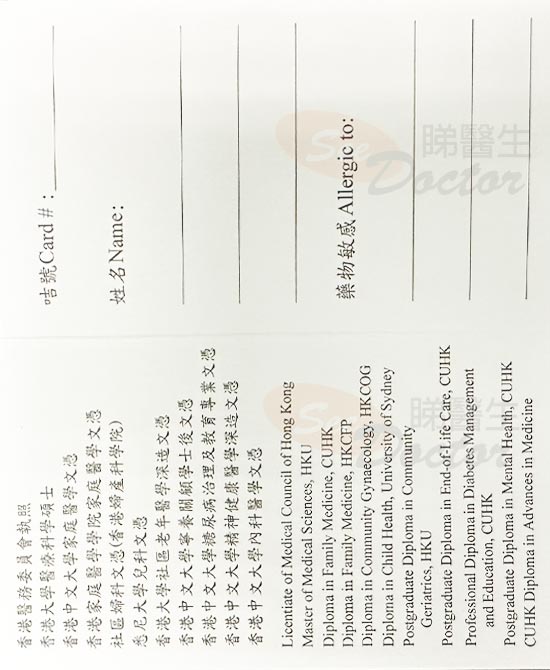 香港醫務委員會執照
香港大學醫療科學碩士
香港中文大學家庭醫學文憑
香港家庭醫學學院家庭醫學文憑
社區婦科文憑(香港婦產科學院)
悉尼大學兒科文憑
香港大學社區老年醫學深造文憑
香港中文大學寧養關顧學士後文憑
香港中文大學糖尿病治理及教育專業文憑
香港中文大學精神健康醫學深造文憑
香港中文大學內科醫學文憑
Licentiate of Medical Council of Hong Kong
Master of Medical Sciences, HKU
Diploma in Family Medicine, CUHK
Diploma in Family Medicine, HKCFP
Diploma in Community Gynaecology, HKCOG
Diploma in Child Health, University of Sydney
Postgraduate Diploma in Community
Geriatrics, HKU
Postgraduate Diploma in End-of-Life Care, CUHK
Professional Diploma in Diabetes Management
and Education, CUHK
Postgraduate Diploma in Mental Health, CUHK
CUHK Diploma in Advances in Medicine
咭號Card #:
姓名Name:
藥物敏感 Allergic to:
See Doctor
睇醫生
See Doctor
睇醫生